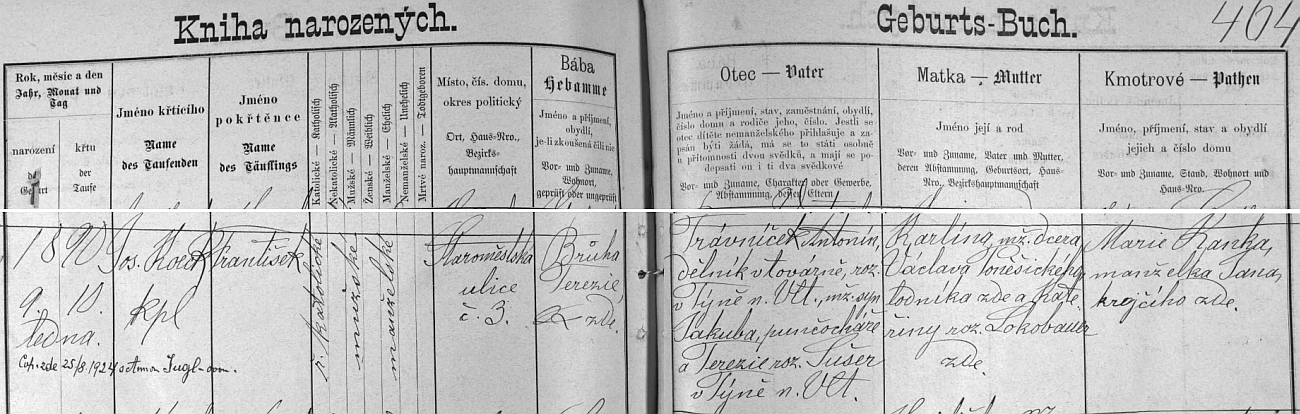 Kniha narozených.
Geburts-Buch.
464
Rok, měsíc a den
Jahr, Monat und
Tag
narození
křtu
der
Taufe
Jméno křtícího
Name
des Taufenden
Jméno
pokřtěnce
Name
des Täuflings
Katolické — Katholisch
Nekatolické — Akatholisch
Mužské — Männlich
Ženské — Weiblich
Manželské — Ehelich
Nemanželské — Unehelich
Mrtvě naroz. — Todtgeboren
Místo, čís. domu,
okres politický
Ort, Haus-Nro.,
Bezirks-
hauptmannschaft
Bába
Hebamme
Jméno a příjmení,
obydlí,
je-li zkoušená čili nic
Vor- und Zuname,
Wohnort,
geprüft oder ungeprüft
Otec — Vater
Jméno a příjmení, stav, zaměstnání, obydlí,
číslo domu a rodiče jeho, číslo. Jestli se
otec dítěte nemanželského přihlašuje a za-
psán býti žádá, má se to státi osobně
u přítomnosti dvou svědků, a mají se po-
depsati on i ti dva svědkové
Vor- und Zuname, Charakter oder Gewerbe,
Abstammung, dessen Eltern
Matka — Mutter
Jméno její a rod
Vor- und Zuname, Vater und Mutter,
deren Abstammung, Geburtsort, Haus-
Nro., Bezirkshauptmannschaft
Kmotrové — Pathen
Jméno, příjmení, stav a obydlí
jejich a číslo domu
Vor- und Zuname, Stand, Wohnort und
Haus-Nro.
1890
9. 10.
ledna.
Cop. zde 25/8 1924 s Annou Jugl
Jos.
kpl
František
ř. katolické
mužské
manželské
Staroměstská
ulice
č. 3.
Brůha
Terezie,
zde.
Trávníček Antonín,
dělník v továrně, roz.
v Týně n. Vlt., mž. syn
Jakuba, punčocháře
a Terezie roz. Sušer
v Týně n. Vlt.
Karlina, mž. dcera
Václava
lodníka zde a Kate-
řiny roz. Lokobauer
zde.
Marie Kanka,
manželka Jana,
krejčího zde.